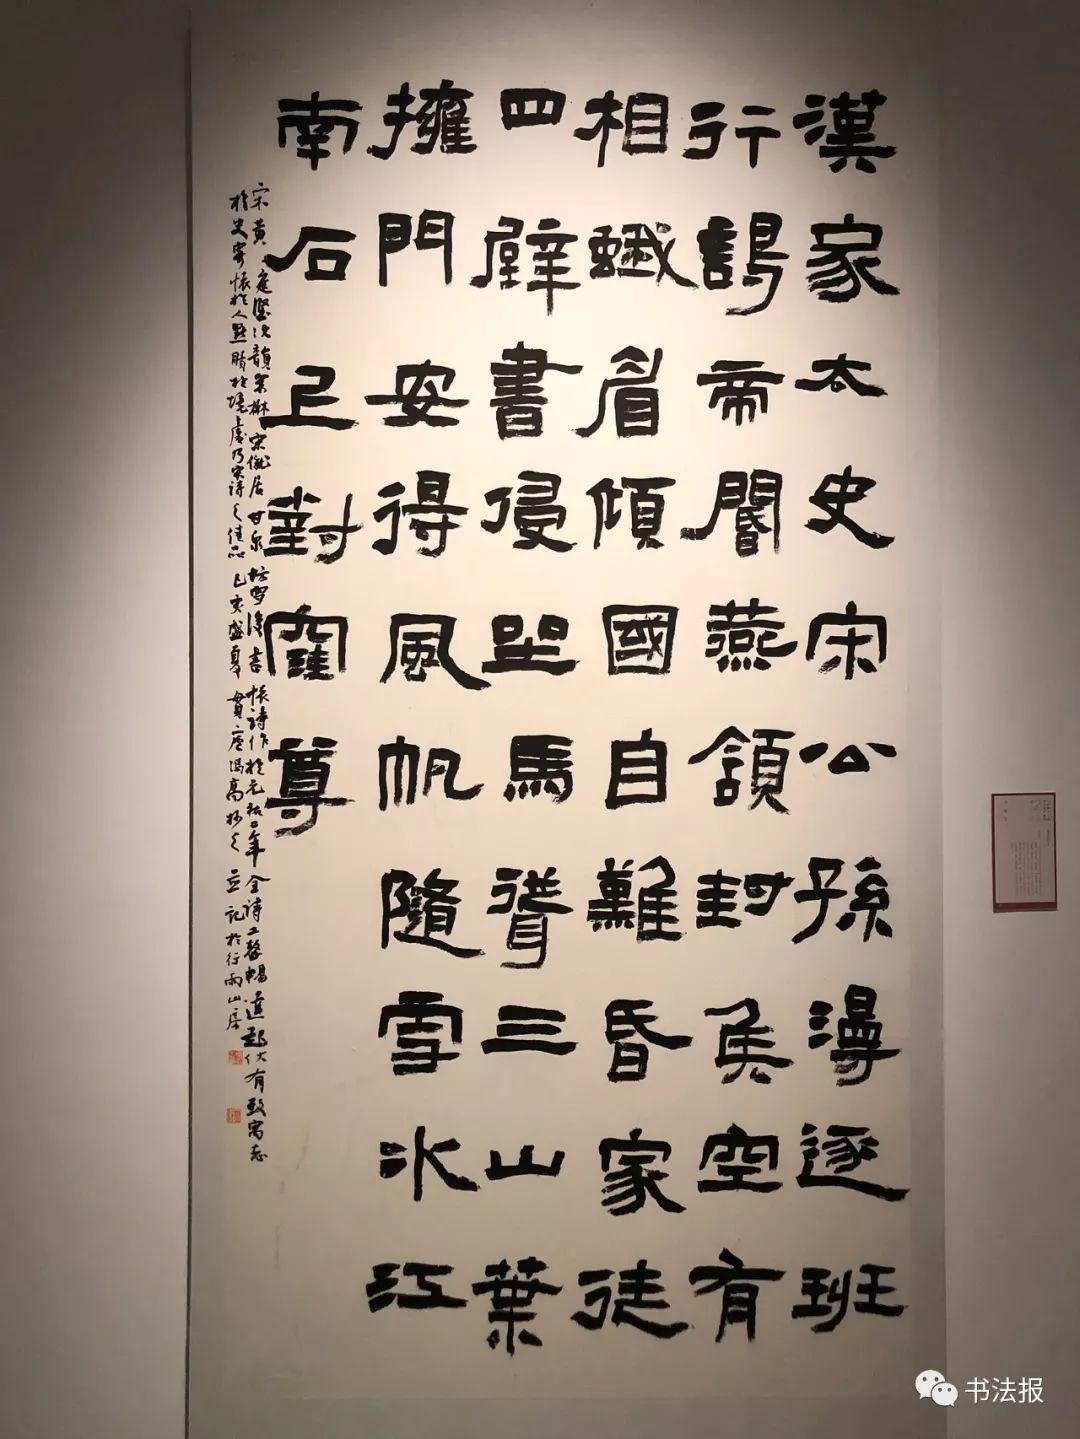 漢家太史宋公孫漫逐班
行謁帝閽燕頷封侯空有
相蛾眉傾國自難昏家徒
四壁書侵坐馬聳三山葉
擁門安得風帆隨雪水江
南石上對窪尊
宋黄庭堅次韻宋楙宗僦居甘泉坊雪後書懷詩作於元祐二年全詩工整暢達起伏有致寓志
於史寄懷於人點睛於境處乃宋詩之佳品己亥盛夏 并記於行雨山房
书法报